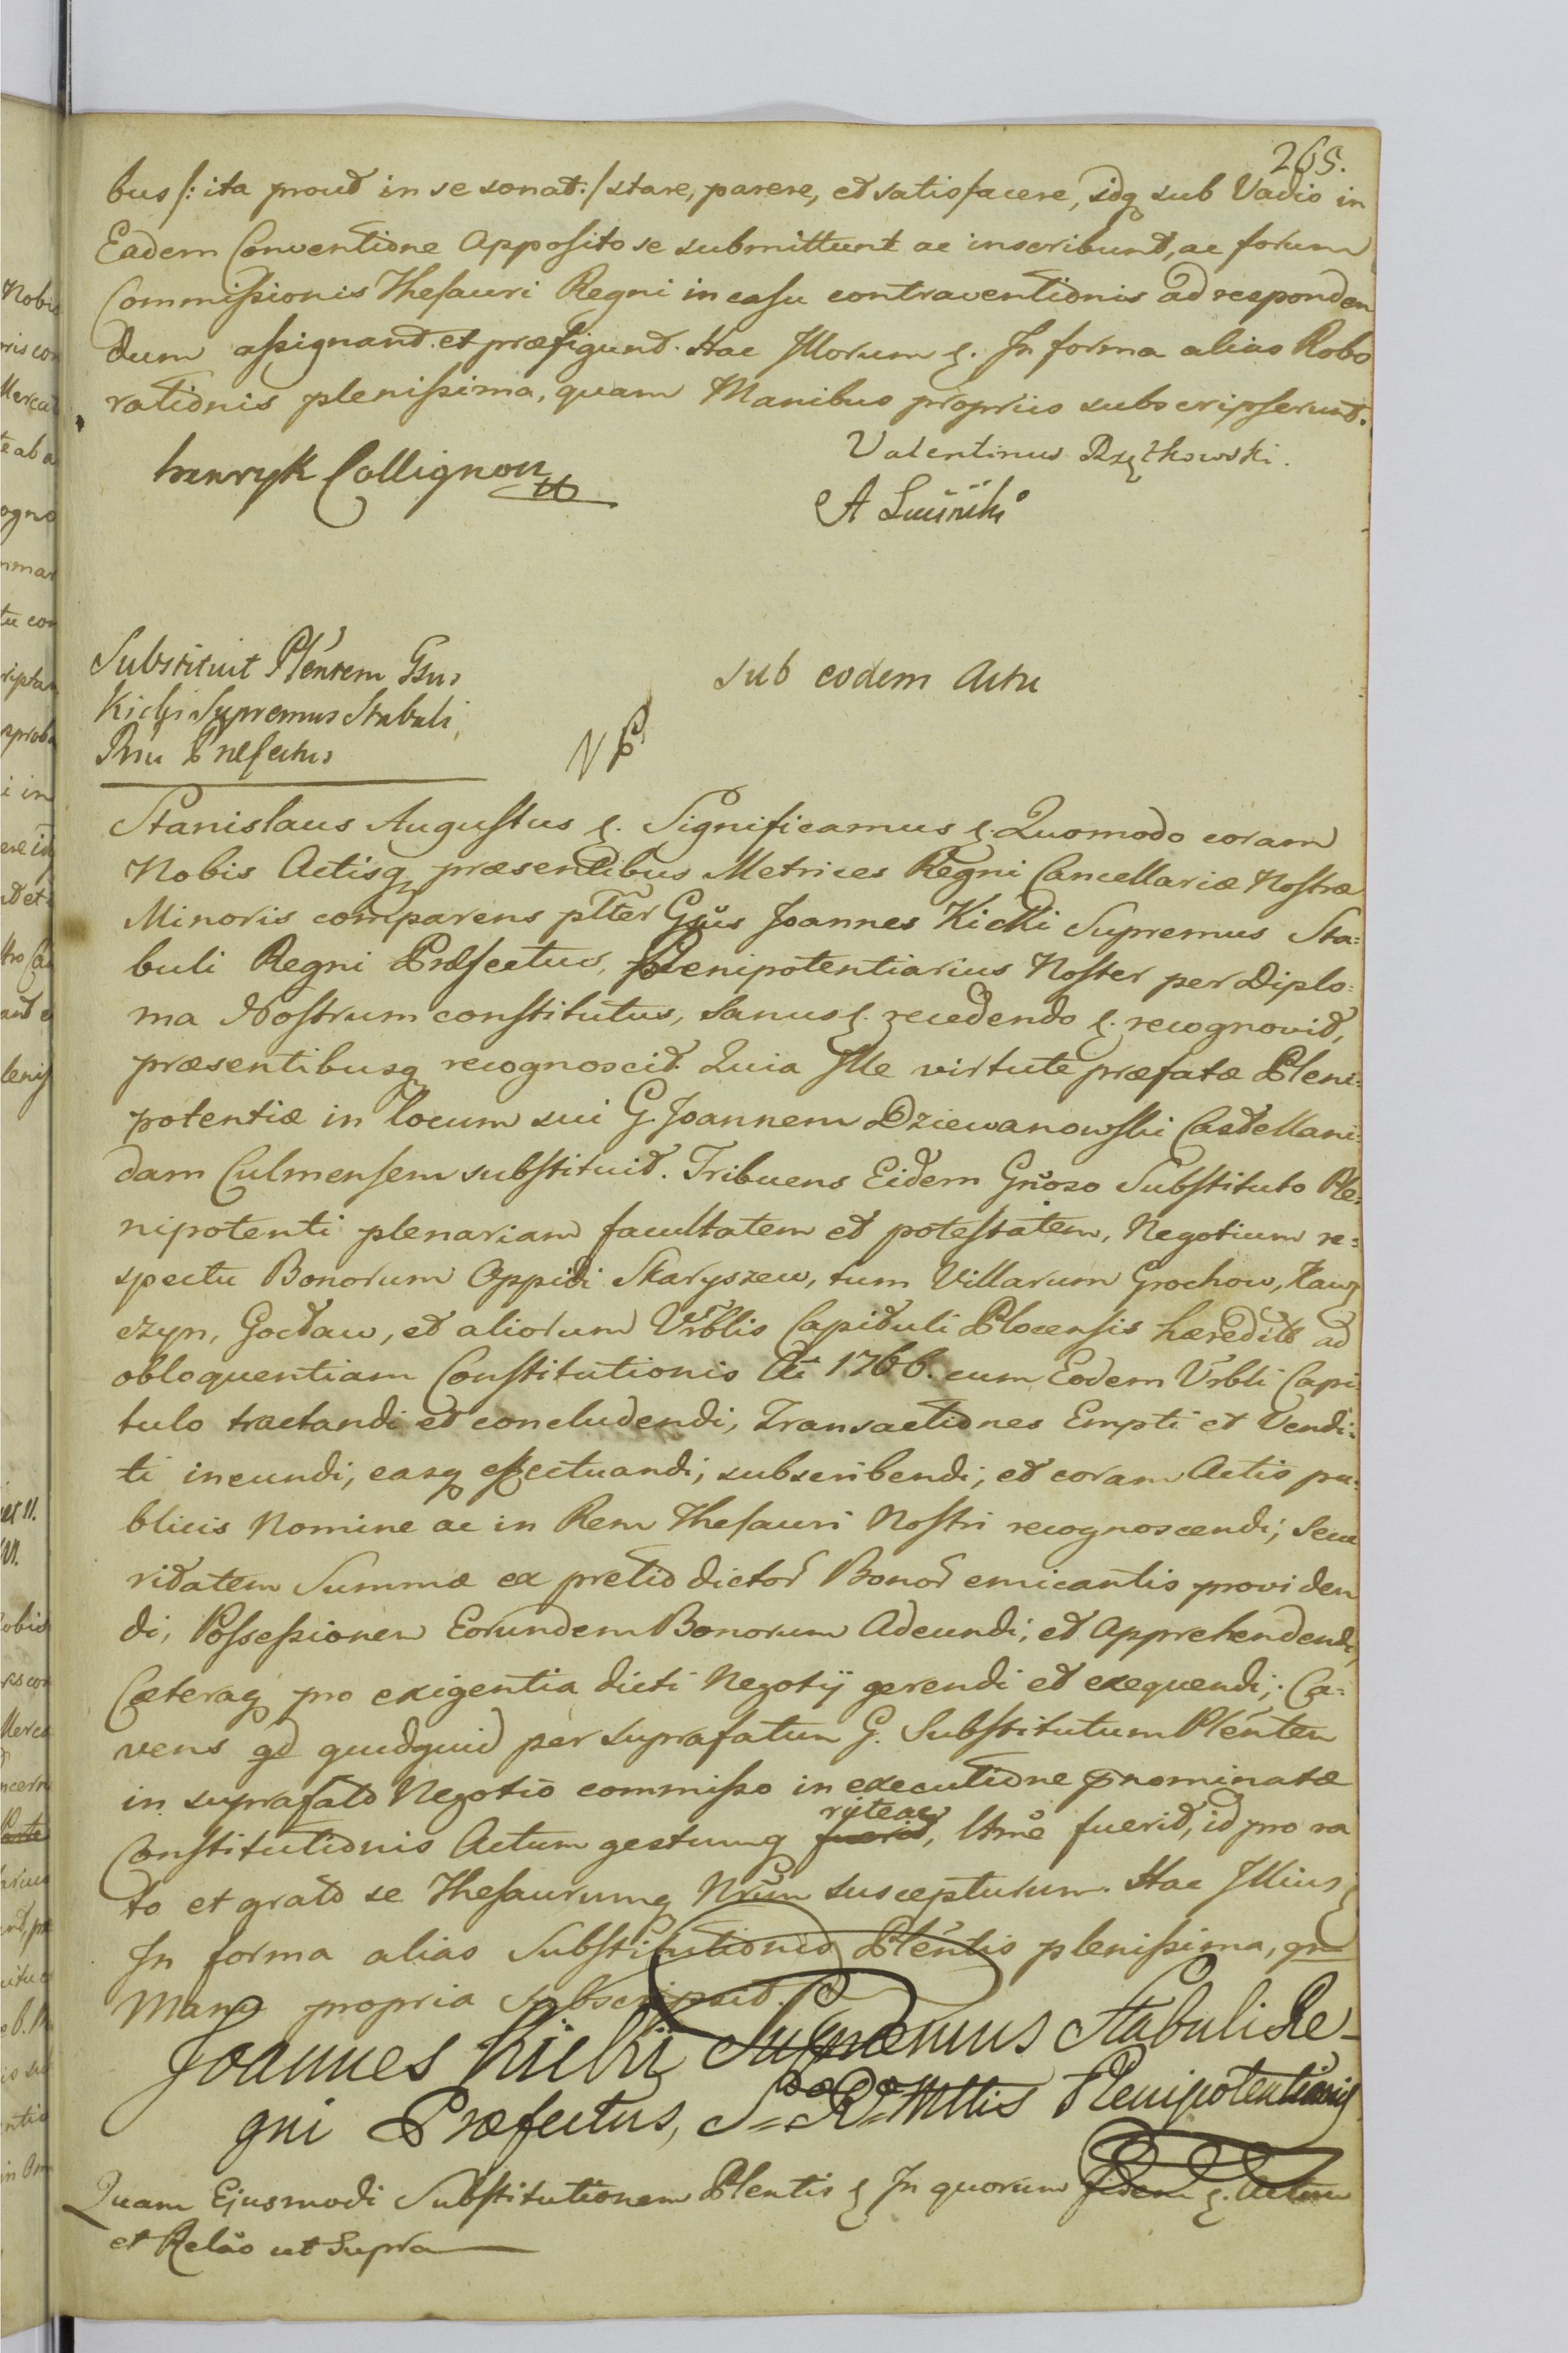 265.
bus /: ita prout in se sonat :/ stare, parere, et satisfacere, idq sub Vadio in
Eadem Conventione Apposito se submittunt ac inscribunt, ac forum
Commissionis Thesauri Regni in casu contraventionis ad responden
dum assignant et præfigunt. Hac Illorum &. In forma alias Robo
rationis plenissima, quam Manibus propriis subscripserunt.
Valentinus Rzątkowski.
henryk Collignon
A
Substituit Pleñtem Gsus
Kicki Supremus Stabuli
Rni Præfectus
sub eodem Actu
Stanislaus Augustus &. Significamus &. Quomodo coram
Nobis Actisq præsentibus Metrices Regni Cancellariæ Nostræ
Minoris comparens plter Gsus Joannes Kicki Supremus Sta=
buli Regni Præfectus, Plenipotentiarius Noster per Diplo=
ma Nostrum constitutus, sanus &. recedendo &. recognovit,
præsentibusq recognoscit. Quia Ille virtute præfatæ Pleni=
potentiæ in locum sui G. Joannem Dziewanowski Castellani=
dam Culmensem substituit. Tribuens Eidem Gñoso Substituto Ple=
nipotenti plenariam facultatem et potestatem, Negotium re=
spectu Bonorum Oppidi Skaryszew, tum Villarum Grochow, Kaw
czyn, Gocław, et aliorum Vrblis Capituli Plocensis hæredit ad
obloquentiam Constitutionis Añi 1766. cum Eodem Vrbli Capi
tulo tractandi et concludendi, Transactiones Empti et Vendi=
ti incundi, easq effectuandi, subscribendi, et coram Actis pu=
blicis Nomine ac in Rem Thesauri Nostri recognoscendi; Secu
ritatem Summæ ex pretio dictor Bonor emicantis providen
di, Possessionem Eorundem Bonorum Adeundi, et Apprehendendi,
Cæteraq pro exigentia dicti Negotij gerendi et exequendi; Ca=
vens qd quidquid per suprafatum G. Substitutum Pléntem
in suprafato Negotio commisso in executione prænominatæ
Constitutionis Actum gestumq fuerit, riteac ltme fuerit, id pro ra
to et grato se Thesaurumq Nrum suscepturum. Hac Illius &
In forma alias Substitutionis Pléntis plenissima, qm
Manu propria subscripsit.
Joannes Kicki Supræmus Stabuli Re=
gni Præfectus, S=R=Mttis Plenipotentiariq
Quam Ejusmodi Substitutionem Plentis & In quorum fidem &. Actum
et Relão ut Supra